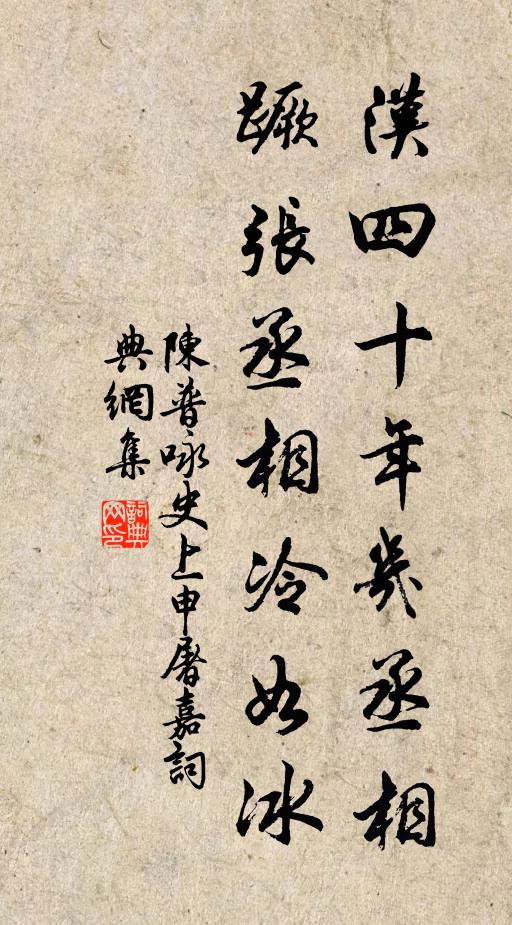 漢四十年幾丞相
蹶張丞相冷如冰
陳普咏史上申屠嘉詞
典網集
詞典
网印